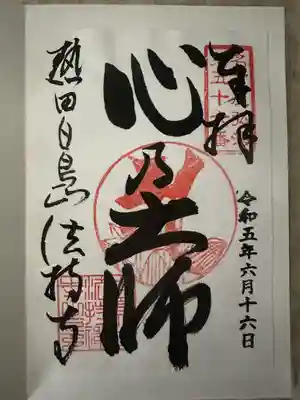 奉拝
令和五年六月十六日
心乃大師
熱田白鳥山法持寺